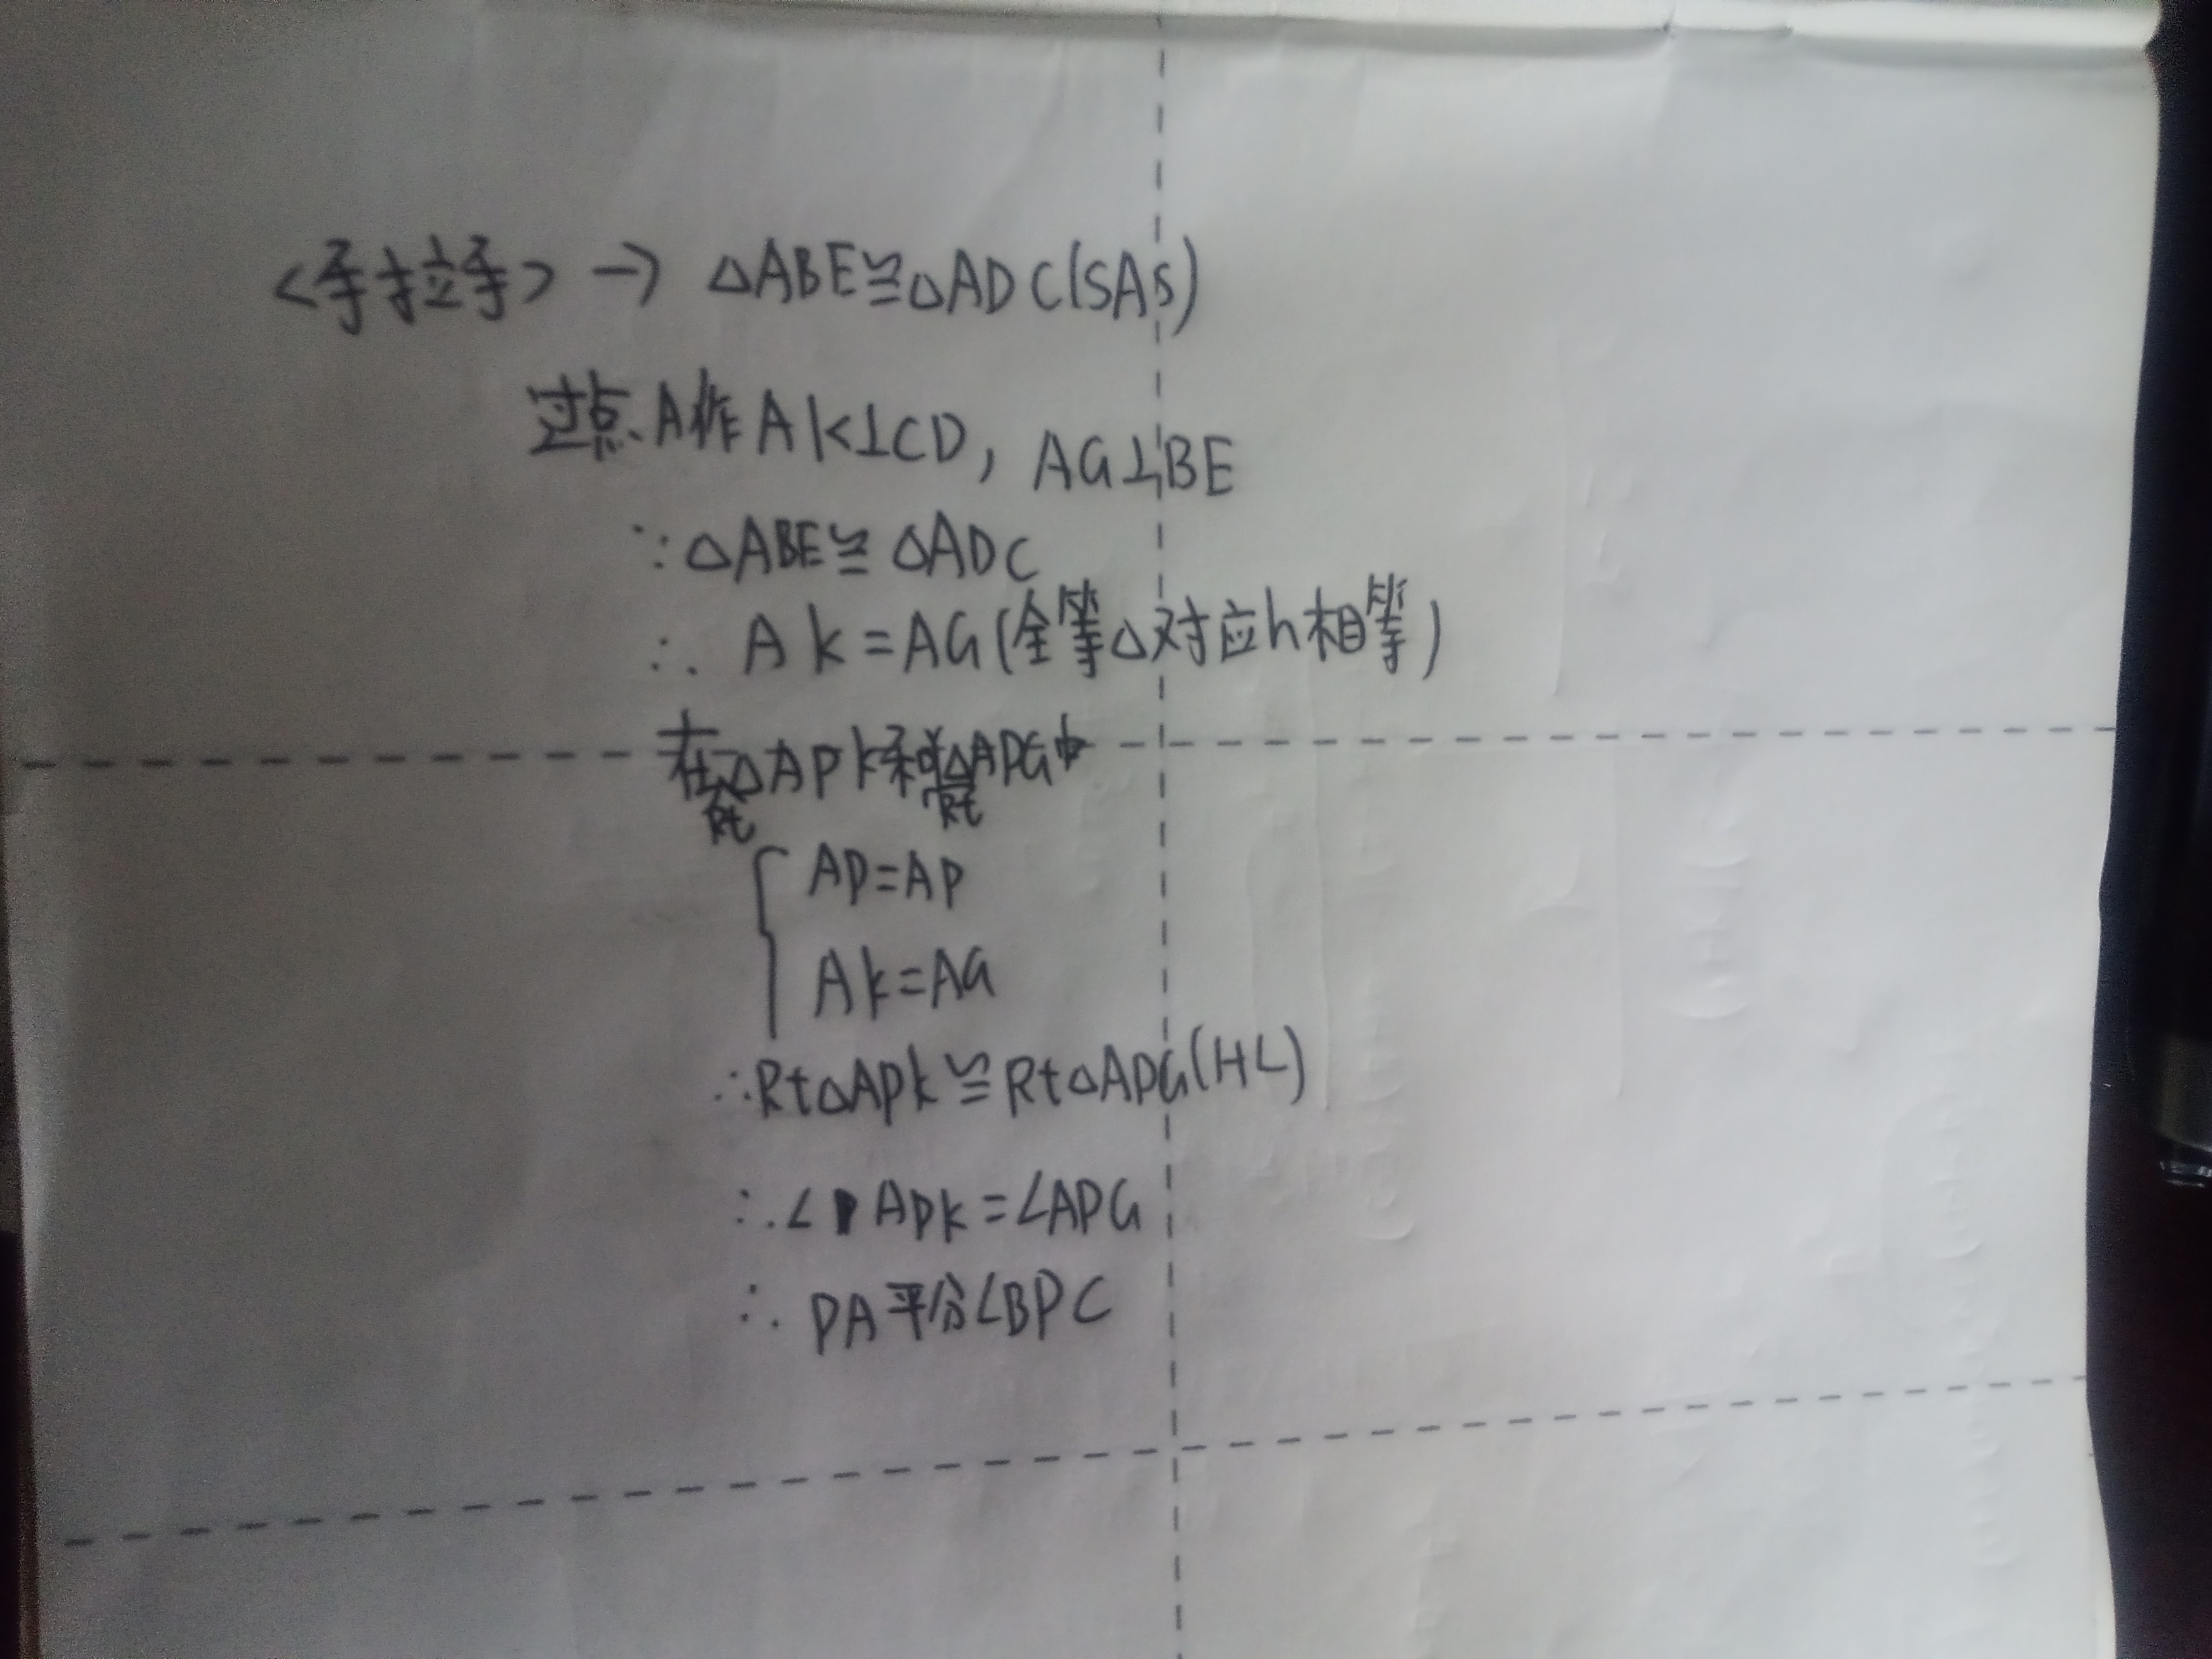 <手拉手> → △ABE≌△ADC(SAS)
过点A作AK⊥CD, AG⊥BE
∵△ABE≌△ADC
∴ AK=AG(全等△对应h相等)
在Rt△APK和Rt△APG中
AP=AP
AK=AG
∴Rt△APK≌Rt△APG(HL)
∴∠APK=∠APG
∴ PA平分∠BPC